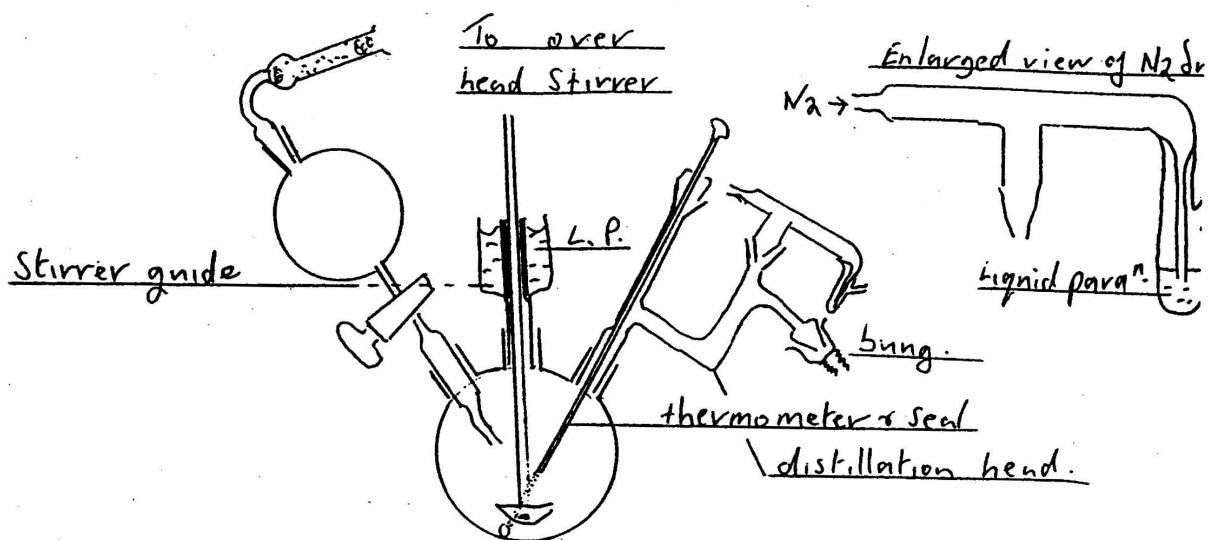 To over
head Stirrer
Enlarged view of N2
N2 →
L.P.
Stirrer guide
Liquid paraⁿ.
bung.
thermometer & seal
distillation head.